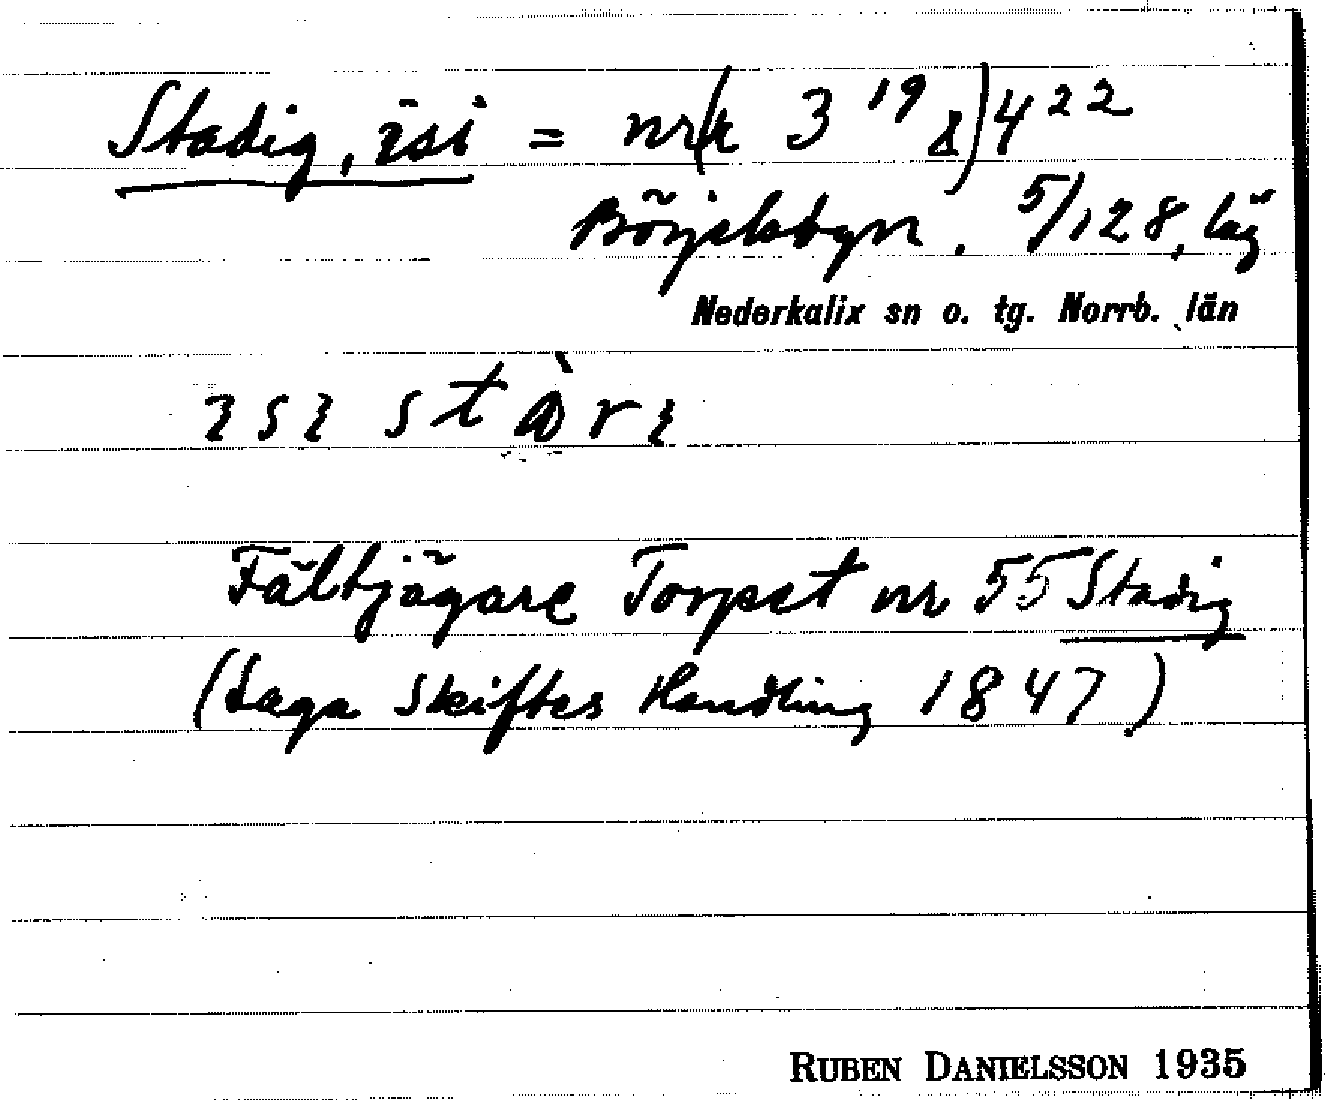 Stadig, isi = nr 3 19 & 4 22
Börjelsbyn. 5/128, läg
Nederkalix sn o. tg. Norrb. län
Fältjägare Torpet nr 55 Stadig
(Laga Skiftes Handling 1847)
RUBEN DANIELSSON 1935